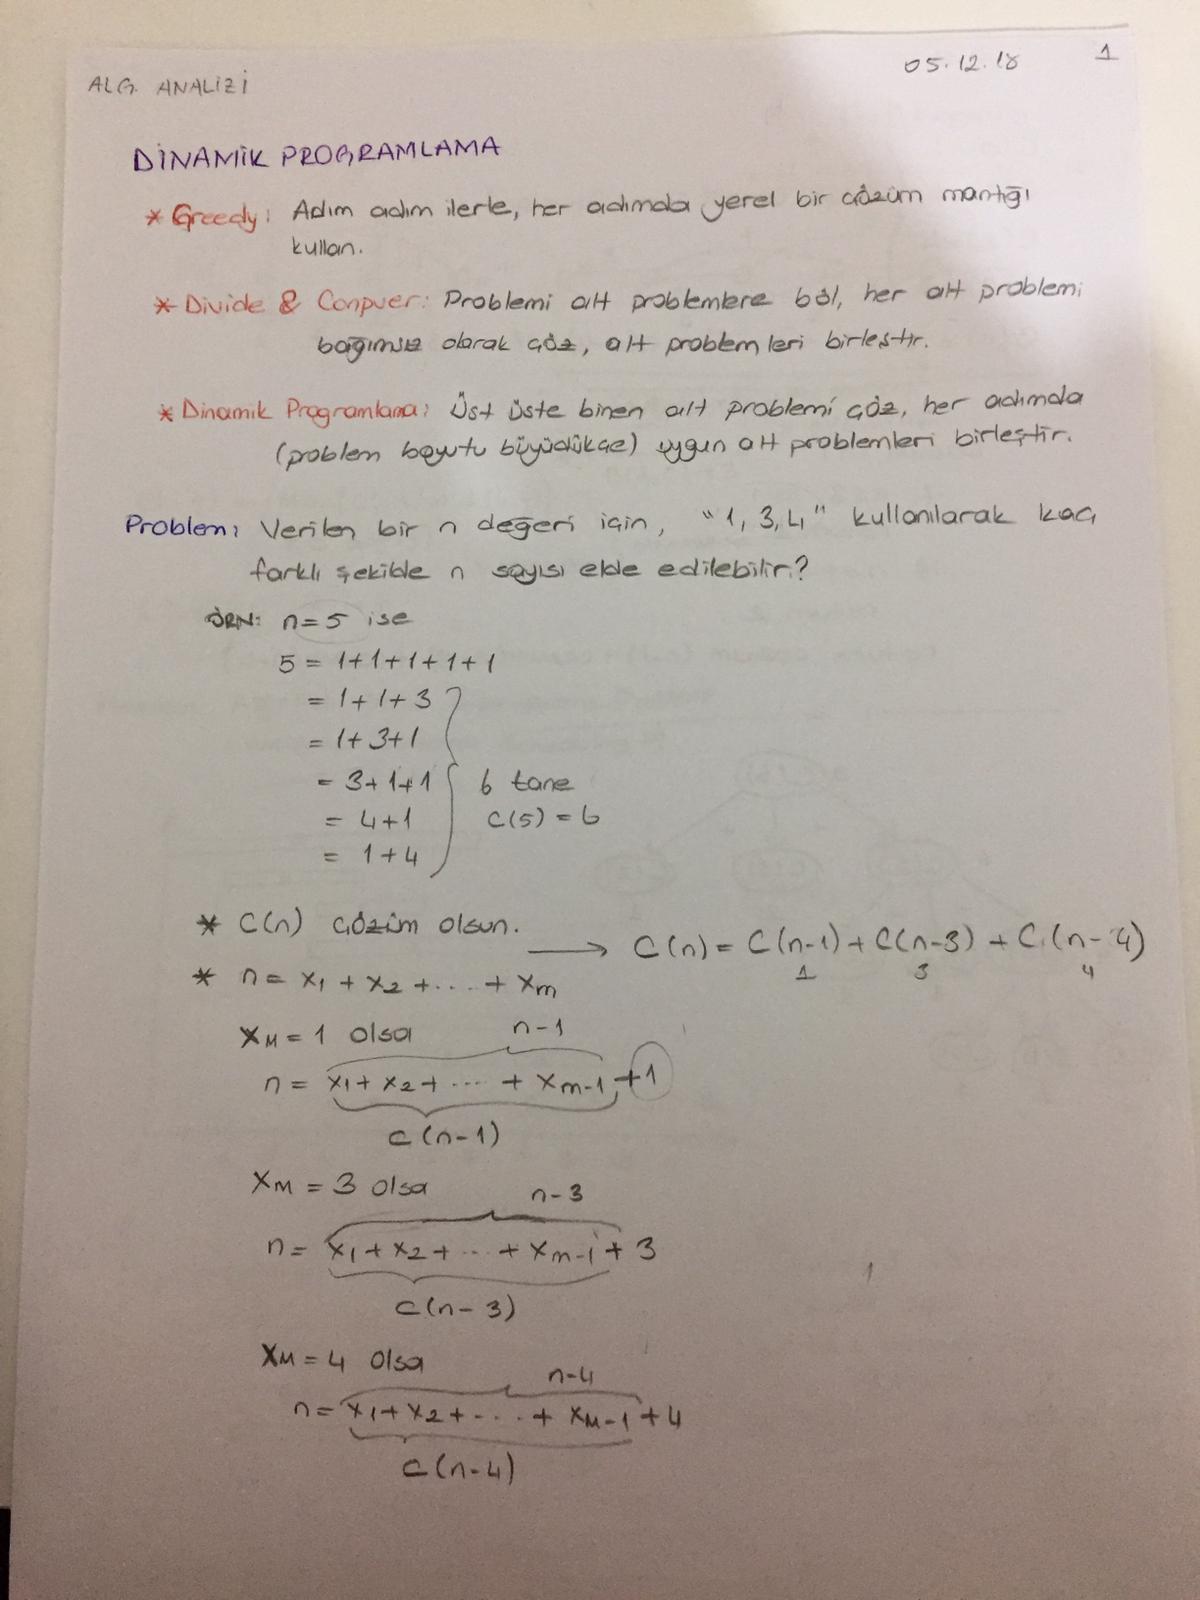 ALG. ANALİZİ
05.12.18
1
DİNAMİK PROGRAMLAMA
* Greedy: Adım adım ilerle, her adımda yerel bir çözüm mantığı
kullan.
* Divide & Conquer: Problemi alt problemlere böl, her alt problemi
bağımsız olarak çöz, alt problemleri birleştir.
* Dinamik Programlama: Üst üste binen alt problemi çöz, her adımda
(problem boyutu büyüdükçe) uygun alt problemleri birleştir.
Problem: Verilen bir n değeri için, "1, 3, 4" kullanılarak kaç
farklı şekilde n sayısı elde edilebilir?
ÖRN: n=5 ise
5 = 1+1+1+1+1
= 1+1+3
= 1+3+1
= 3+1+1 6 tane
= 4+1 C(5) = 6
= 1+4
* C(n) çözüm olsun. → C(n) = C(n-1) + C(n-3) + C(n-4)
1 3 4
* n = x1 + x2 + .... + xm
XM = 1 olsa n-1
n = x1 + x2 + .... + xm-1 + 1
C(n-1)
XM = 3 olsa n-3
n = x1 + x2 + ... + xm-1 + 3
C(n-3)
XM = 4 olsa n-4
n = x1 + x2 + .... + xM-1 + 4
C(n-4)